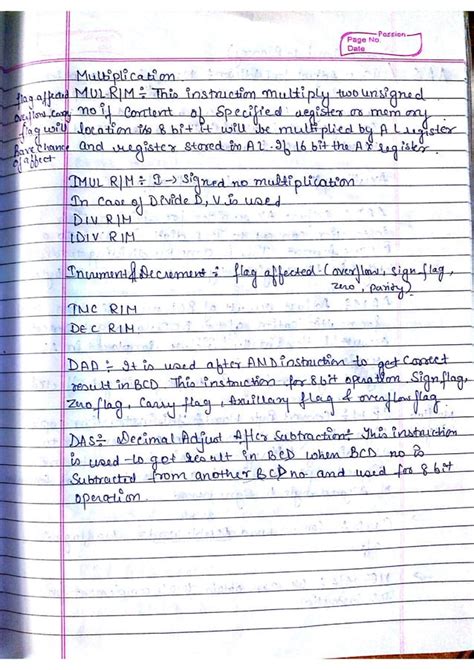 Passion
Page No.
Date
Multiplication
flag affected MUL R/M ÷ This instruction multiply two unsigned
overflow, carry no if content of specified register or memory
flag will location is 8 bit it will be multiplied by AL register
have chance and register stored in AL. If 16 bit the AX register.
of affect
IMUL R/M ÷ I → Signed no multiplication
In Case of Divide D, V is used
DIV R/M
IDIV R/M
Increment & Decrement ÷ flag affected (overflow, sign flag,
zero, parity)
INC R/M
DEC R/M
DAA ÷ It is used after AND instruction to get correct
result in BCD This instruction for 8 bit operation Sign flag
Zero flag, Carry flag, Auxillary flag & overflow flag
DAS ÷ Decimal Adjust After Subtraction ÷ This instruction
is used to get result in BCD when BCD no is
Subtracted from another BCD no and used for 8 bit
operation.